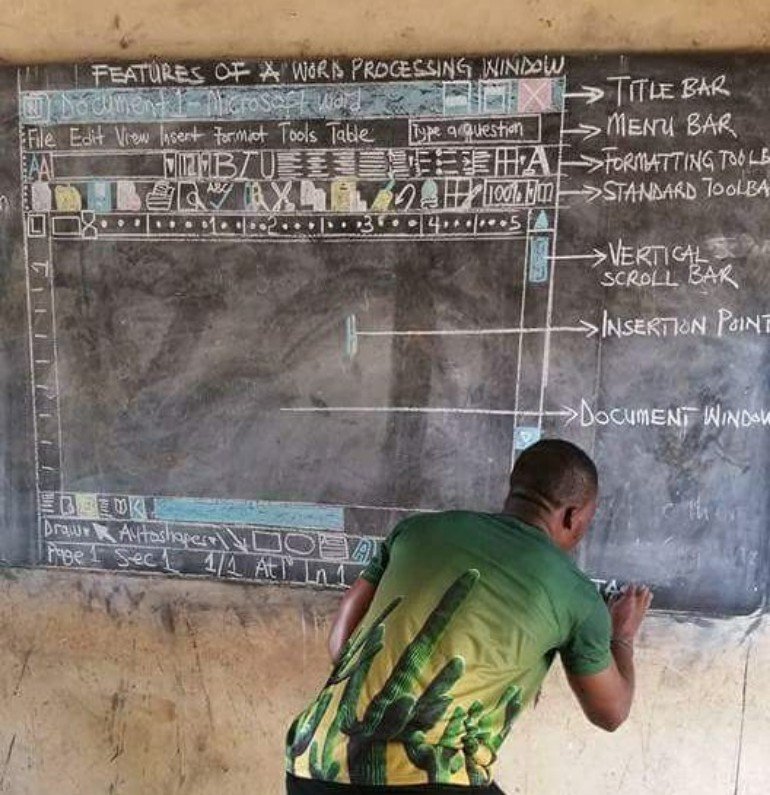 FEATURES OF A WORD PROCESSING WINDOW
W Document 1 - Microsoft Word
TITLE BAR
File Edit View Insert Format Tools Table
Type a question
MENU BAR
AA
12
B I U
A
FORMATTING TOOLB
ABC
100%
STANDARD TOOLBA
L
1 2 3 4 5
VERTICAL
SCROLL BAR
INSERTION POINT
DOCUMENT WINDOW
Draw
Autoshapes
A
Page 1 Sec 1 1/1 At 1" Ln 1
STA